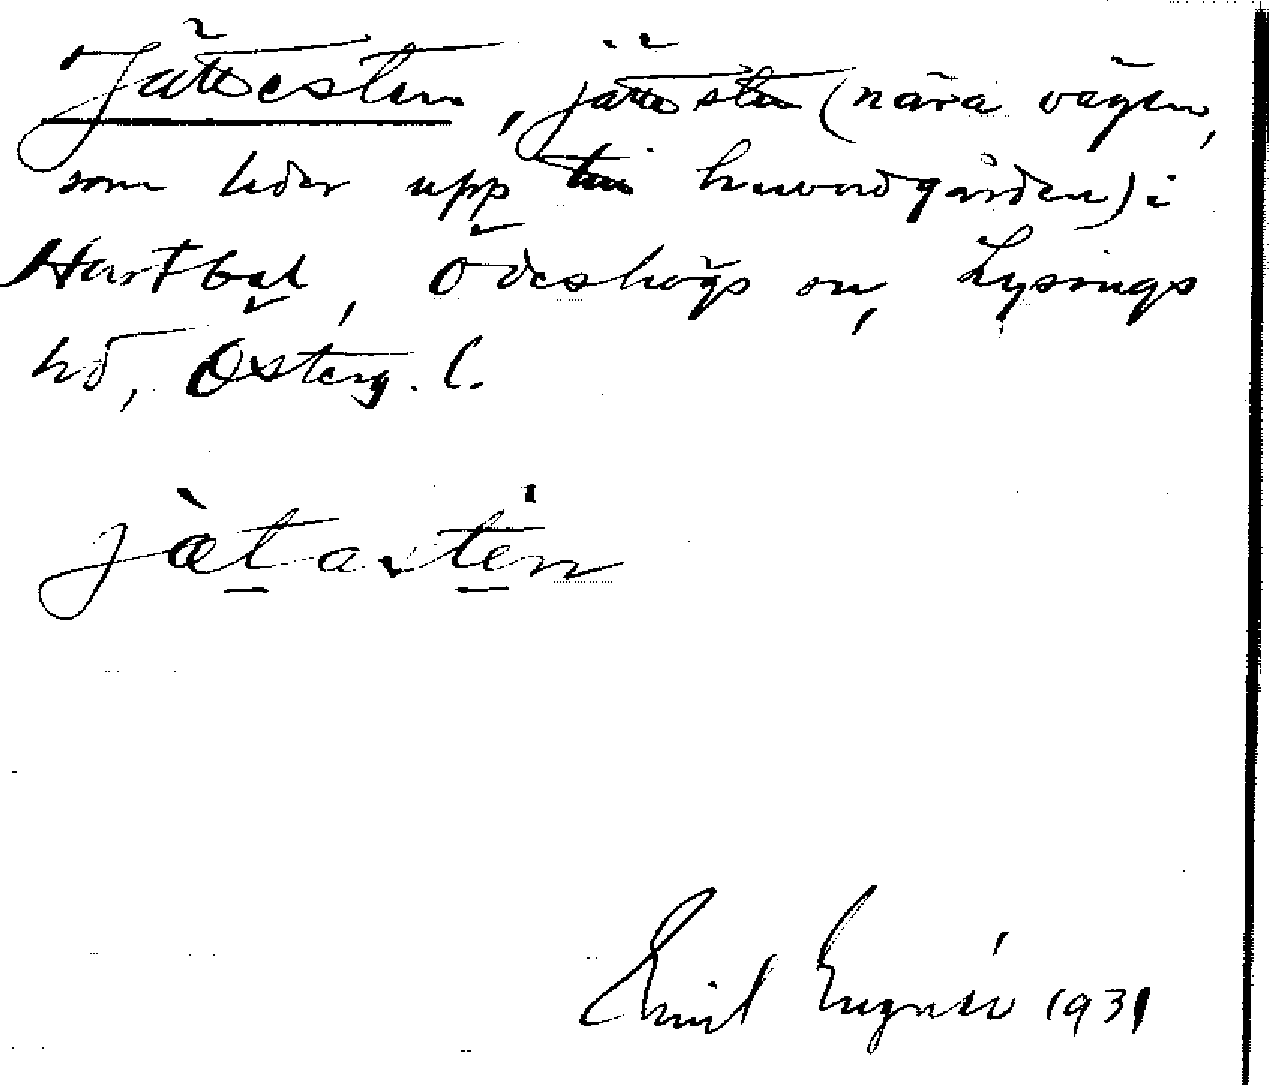 Jättestenen, jättesten (nära vägen,
som leder upp till huvudgården) i
Ödeshögs sn, Lysings
hd, Österg. l.
jàtastén
Emil 1931